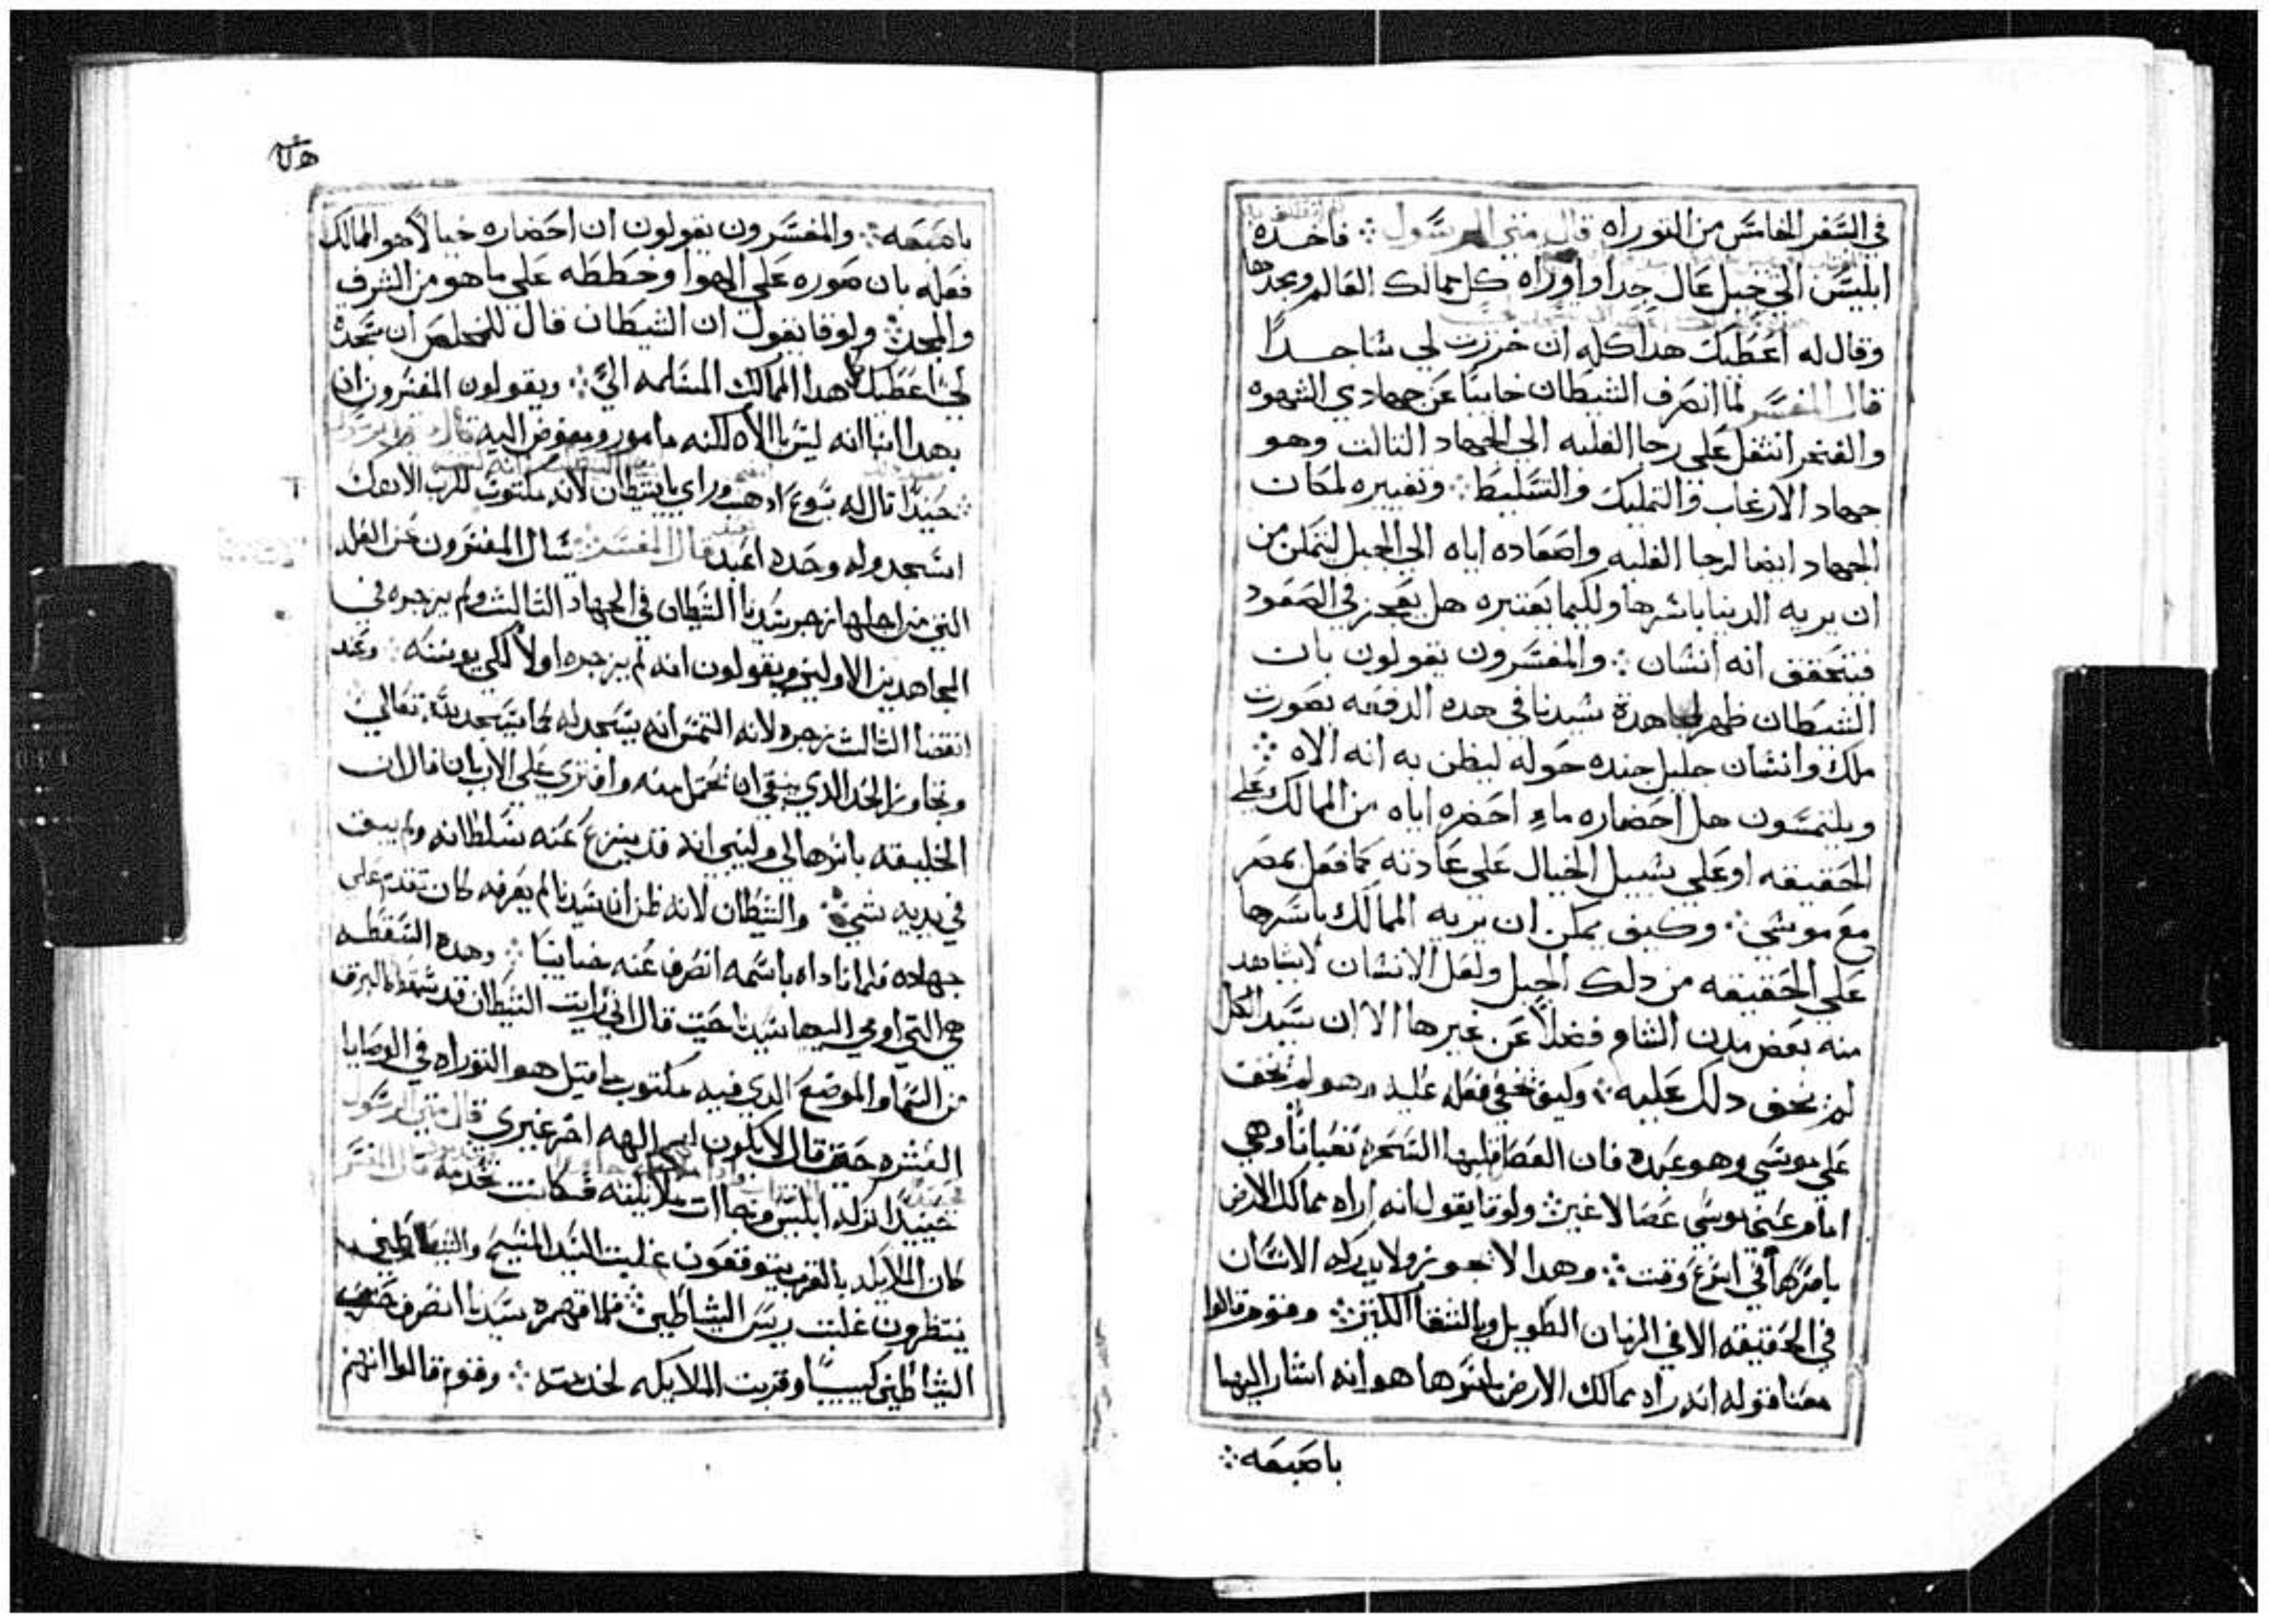 في السَّفر الخامسَّ من التوراه قال متى الرسَّول ܀ فاخده
ابليسَّ الي جبل عَال جدا واوراه كل ممالك العَالم ومجدها
وقال له اعَطيك هدا كله ان خررت لي سَاجدًا
قال المفسَّر لما انصَرف الشيطان خايبًا عَن جهادي الشهوه
والفخر انتقل عَلي رجا الغلبه الي الجهاد التالت وهو
جهاد الارغاب والتمليك والتسَّليط ܀ وتغييره لمكان
الجهاد ايضا لرجا الغلبه واصَعَاده اياه الي الجبل ليتمكن من
ان يريه الدنيا باسَرها ولكيما يعَتبره هل يعَجز في الصَعَود
فيتحَقق انه انسَان ܀ والمفسَّرون يقولون بان
الشيطان ظهر لمجاهدة سَيدنا في هده الدفعَه بصَورت
ملك وانسَان جليل جنده حَوله ليظن به انه الاه ܀
ويلتمسَّون هل احَضاره ماء احَضره اياه من الممالك عَلي
الحَقيقه او عَلي سَبيل الخيال عَلي عَادته كما فعَل بمصَر
معَ موسَي ܀ وكيف يمكن ان يريه الممالك باسَرها
عَلي الحَقيقه من دلك الجبل ولعَل الانسَان لا يشاهد
منه بعَض مدن الشام فضلاً عَن غيرها الا ان سَيد الكل
لم يخف دلك عَليه ܀ وكيف يخفي فعَله عَليه وهو لم يخف
عَلي موسَي وهو عَبده فان العَصَا قلبها السَّحَرة تعَبانًا وهي
امام عَيني موسَي عَصَا لا غير ܀ ولوقا يقول انه اراه ممالك الارض
باسَرها في اسَرعَ وقت ܀ وهدا لا يجوز ولا يدركه الانسَان
في الحَقيقه الا في الزمان الطويل وبالشقا الكتير ܀ وقوم قالوا
معَنا قوله انه راه ممالك الارض باسَرها هو انه اشار اليها
باصَبعَه ܀
باصَبعَه ܀ والمفسَّرون يقولون ان احَضاره خيالاً هو الممالك
فعَله بان صَوره عَلي الهوا وخطَطه عَلي ما هو من الشرف
والمجد ܀ ولوقا يقول ان الشيطان قال للمخلصَ ان سَجدة
لي اعَطيك هدا الممالك المسَلمه اليَّ ܀ ويقولون المفسَّرون ان
بهدا انبا انه ليسَ بالاه لكنه مامور ومفوض اليه قال متى الرسَّول
܀ حَيندًا قال له يسَوعَ ادهب وراي يا شيطان لانه مكتوب للرب الاهك
اسَّجد وله وحَده اعَبد قال المفسَّر ܀ سَال المفسَّرون عَن العَله
التي من اجلها زجر سَيدنا الشيطان في الجهاد التالت ولم يزجره في
المجاهدين الاولين ويقولون انه لم يزجره اولاً لكي يوبنه ܀ وعَند
انقضا التالت زجره لانه التمسَ انه يسَجد له كما يسَجد لله تعَالي ܀
وتجاوز الحَد الدي ينبغي ان يحَمل منه وافتري عَلي الاب بان قال ان
الخليقه باسَرها لي وليبي انه قد ينزعَ عَنه سَلطانه ولم يبق
في يديه شي ܀ والشيطان لانه ظن ان سَيدنا لم يعَرفه كان تقدم عَلي
جهاده فلما ناداه باسَمه انصَرف عَنه خايبًا ܀ وهده السَّقطَه
هي التي اومي اليها سَيدنا حَيت قال اني رايت الشيطان قد سَقط كالبرق
من السَما والموضعَ الدي فيه مكتوب ما قيل هو التوراه في الوصَايا
العَشره حَيت قال لا يكون لكم الهه اخر غيري قال متى الرسَّول
حَينيدًا تركه ابليسَ وجاات ملايكته فكانت تخدمه قال المفسَّر
كان الملايكه بالقرب يتوقعَون غلبت السَّيد المسَيح والشياطين
ينتظرون غلبت ريسَ الشياطين ܀ فلما قهره سَيدنا انصَرف حَزب
الشياطين كييبًا وقربت الملايكه لخدمته ܀ وقوم قالوا انهم